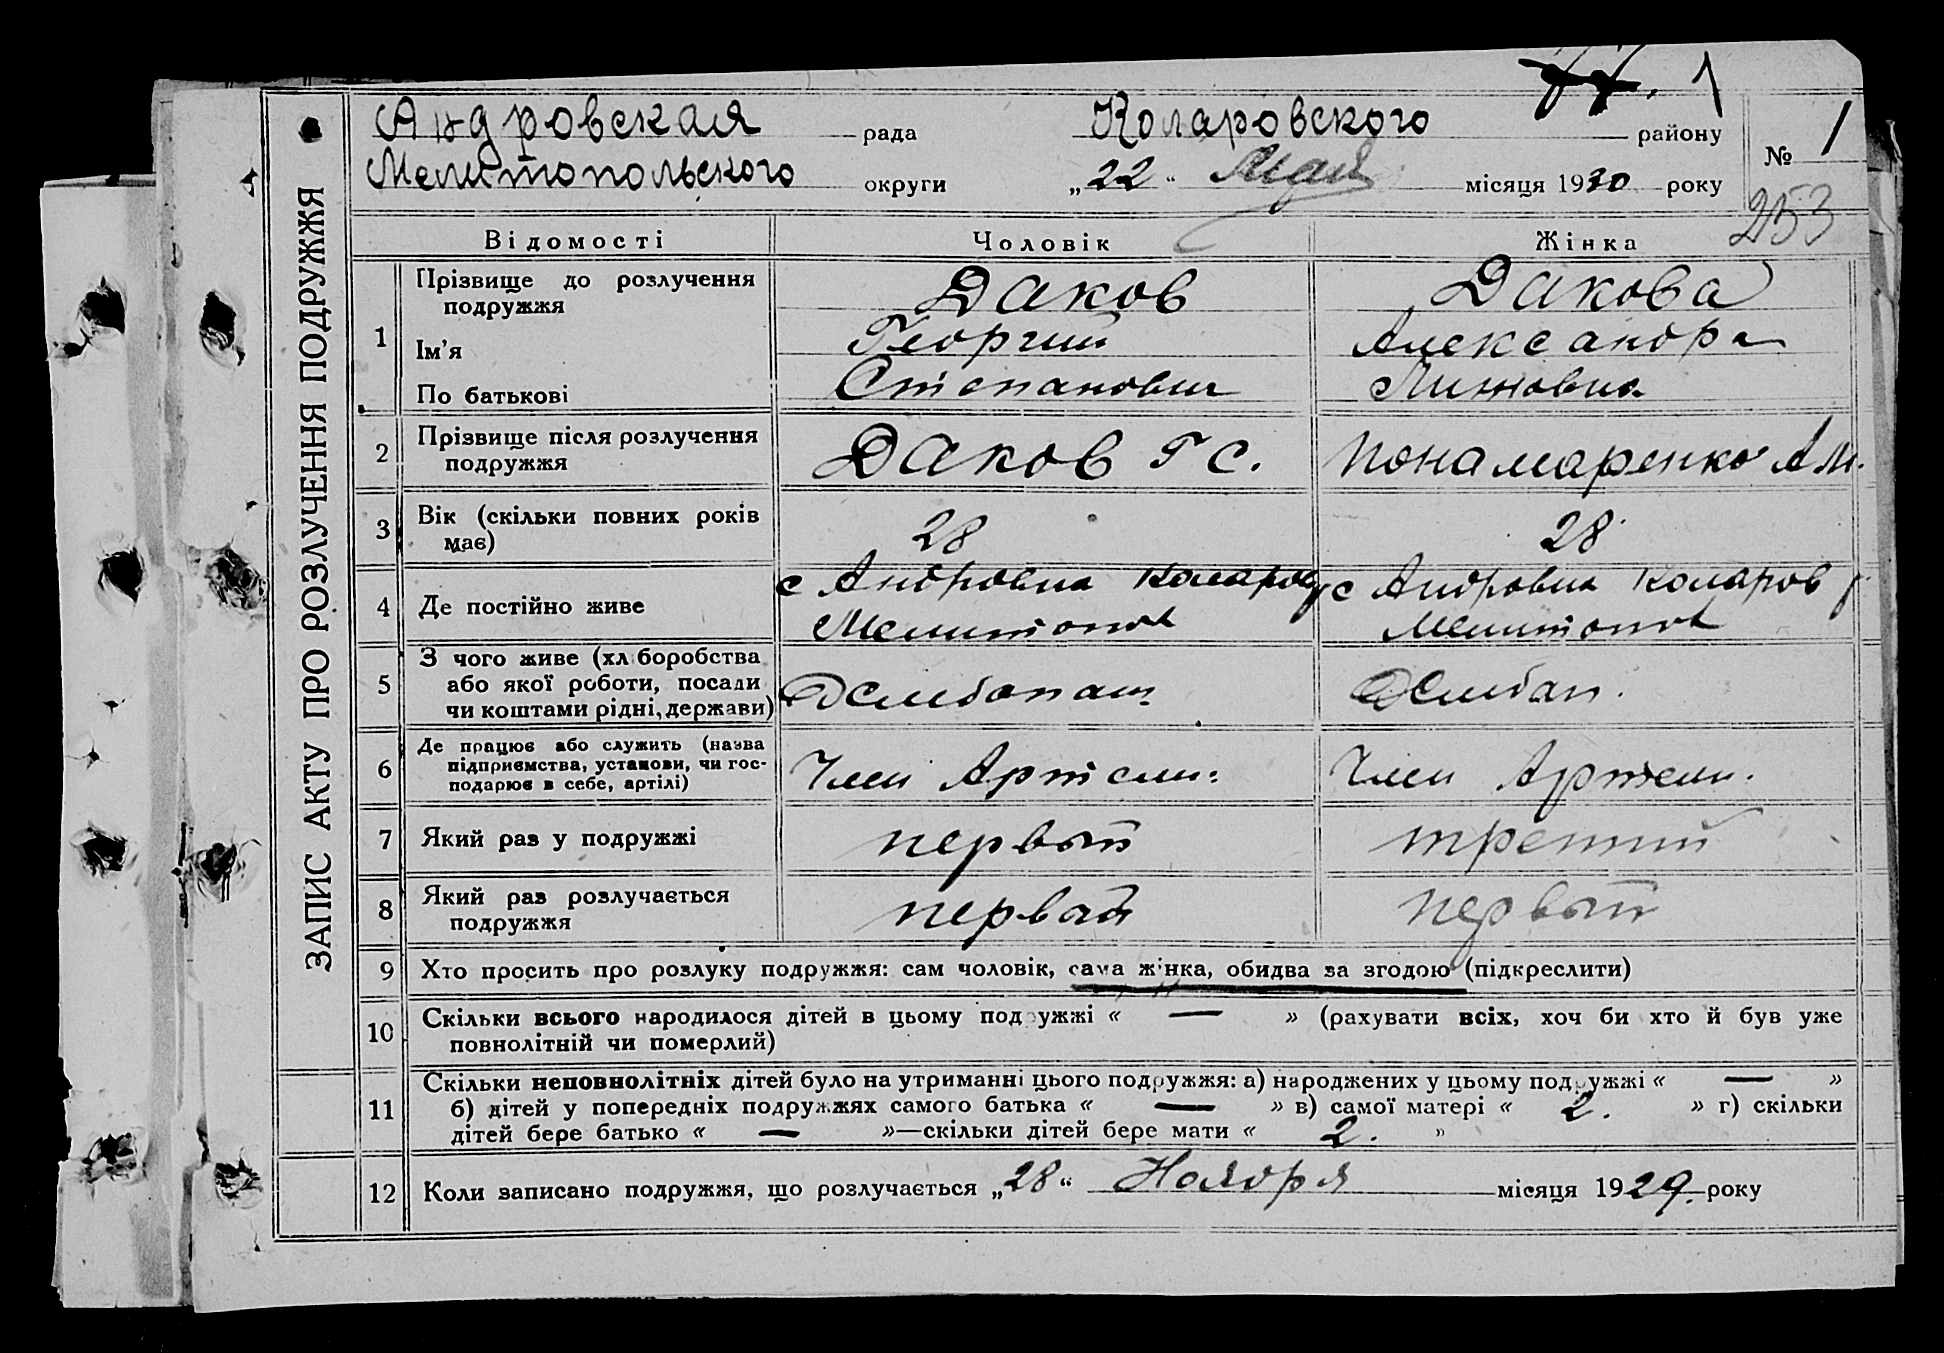 77. 1
Андровская рада Коларовского району № 1
Мелитопольского округи „22“ Мая місяця 1930 року
253
ЗАПИС АКТУ ПРО РОЗЛУЧЕННЯ ПОДРУЖЖЯ
Відомості Чоловік Жінка
1 Прізвище до розлучення подружжя Даков Дакова
Ім'я Георгий Александра
По батькові Степанович
2 Прізвище після розлучення подружжя Даков Г С. Понамаренко А М.
3 Вік (скільки повних років має) 28 28
4 Де постійно живе с Андровка Коларов с Андровка Коларов р
Мелитопол Мелитопол
5 З чого живе (хліборобства або якої роботи, посади чи коштами рідні, держави)
6 Де працює або служить (назва підприємства, установи, чи господарює в себе, артілі) Член Артели. Член Артели.
7 Який раз у подружжі первый третий
8 Який раз розлучається подружжя первый первый
9 Хто просить про розлуку подружжя: сам чоловік, сама жінка, обидва за згодою (підкреслити)
10 Скільки всього народилося дітей в цьому подружжі « — » (рахувати всіх, хоч би хто й був уже
повнолітній чи померлий)
11 Скільки неповнолітніх дітей було на утриманні цього подружжя: а) народжених у цьому подружжі « — »
б) дітей у попередніх подружжях самого батька « — » в) самої матері « 2. » г) скільки
дітей бере батько « — »—скільки дітей бере мати « 2. »
12 Коли записано подружжя, що розлучається „28“ Ноября місяця 1929. року